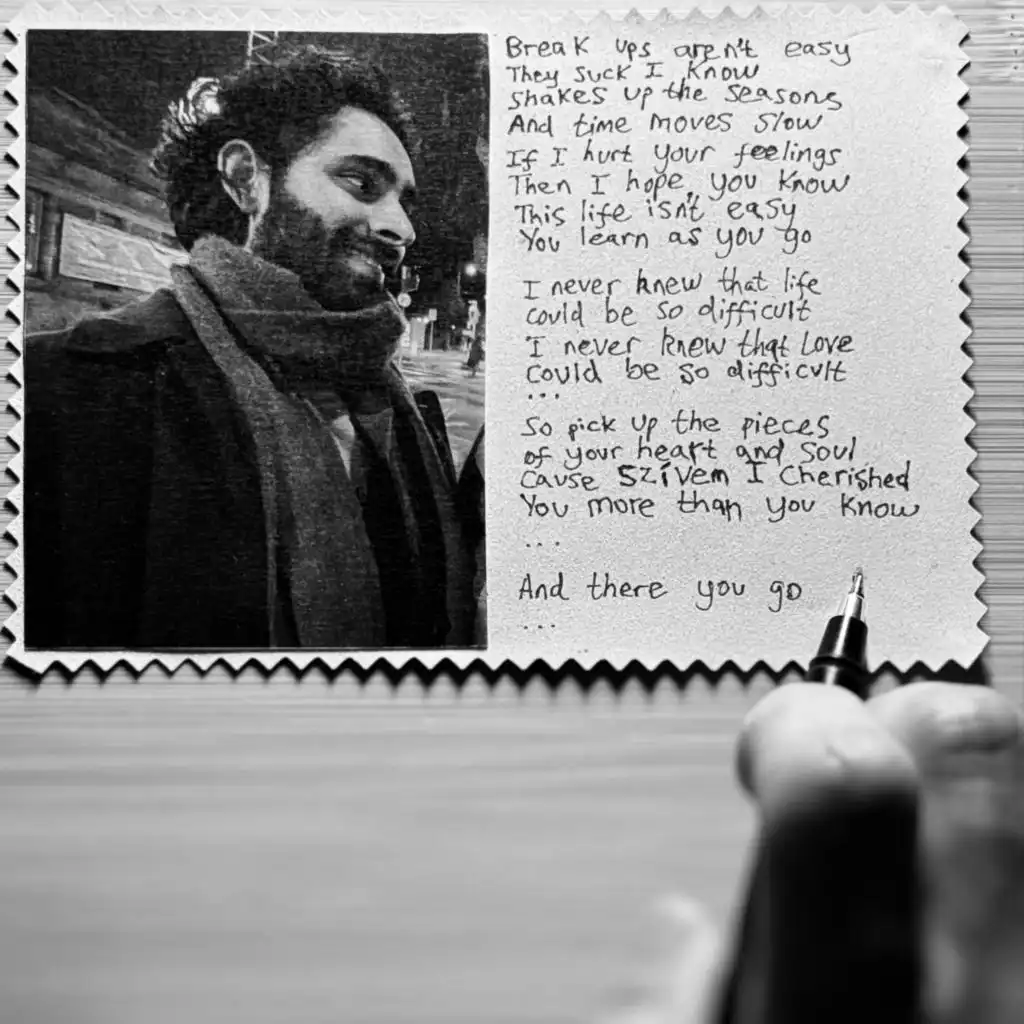 Break ups aren't easy
They suck I know
Shakes up the seasons
And time moves slow
If I hurt your feelings
Then I hope, you know
This life isn't easy
You learn as you go
I never knew that life
could be so difficult
I never knew that Love
could be so difficult
...
So pick up the pieces
of your heart and soul
Cause Szívem I Cherished
You more than you know
...
And there you go
...